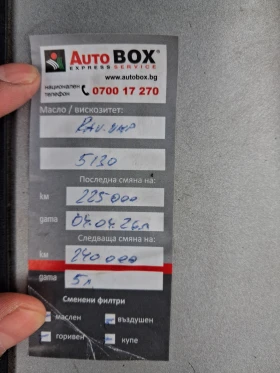 AUTO BOX
EXPRESS SERVICE
www.autobox.bg
национален
телефон 0700 17 270
Масло / вискозитет:
5W30
Последна смяна на:
км 225000
дата 04.04.26г
Следваща смяна на:
км 240 000
дата 5л
Сменени филтри
маслен въздушен
горивен купе